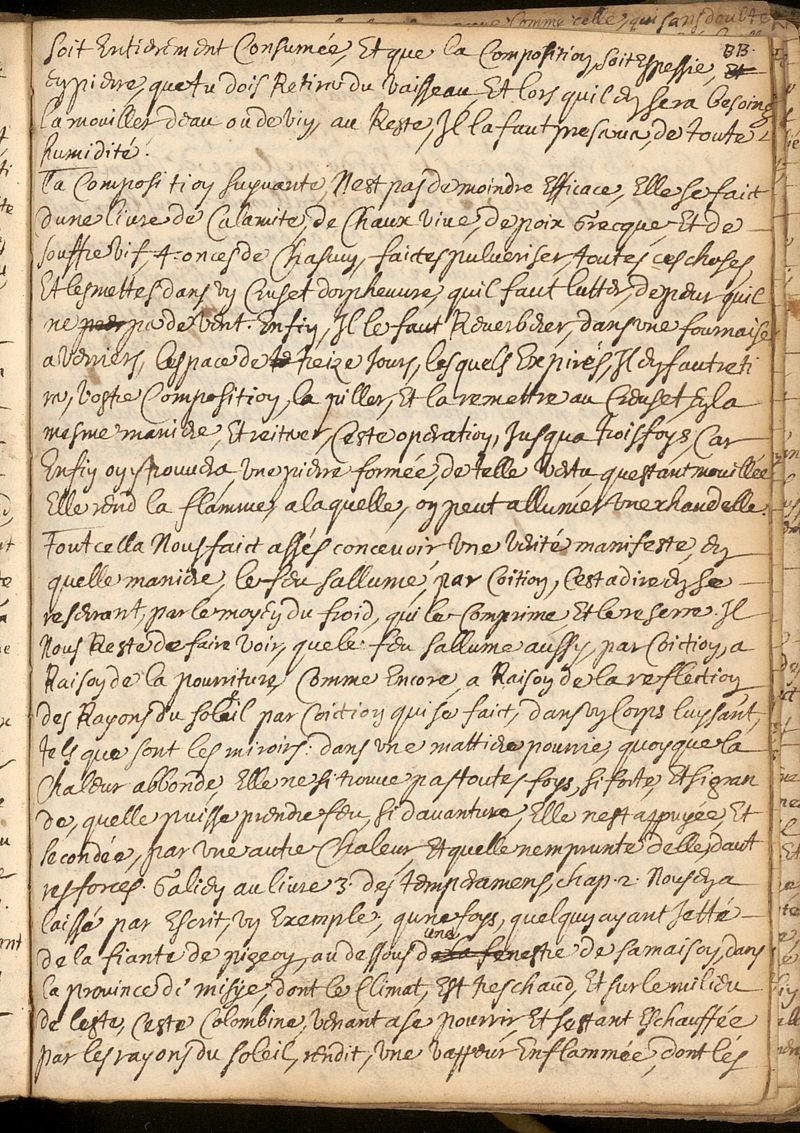 88.
soit Entierement Consumée, Et que la Composition, soit Espessie, Et
En pierre, que tu dois Retirer du Vaisseau, Et lors quil En sera besoing
la mouiller deau ou de vin, au Reste, Il la faut preserver, de toute
humidité.
La Composition suyvante, Nest pas de moindre Efficace, Elle se faict
dune livre de Calamite, de Chaux vive, de poix Grecque, Et de
souffre vif, 4 onces de Chascun, faictes pulveriser, toutes ces choses,
Et les mettes dans un Cruset dorphevure, quil faut lutter, de peur quil
ne per pa de vent. Enfin, Il le faut Reverberer, dans une fournaise
a verriers, lespace de te treize Jours, lesquels Expirés, Il En faut reti
rer, vostre Composition, la piller, Et la remettre au Creuset En la
mesme maniere, Et reiterer, Ceste operation, Jusqua trois foys, Car
Enfin on y trouvera, une pierre formée, de telle vertu questant mouillée
Elle rend la flamme, a laquelle, on peut allumer une chandelle.
Tout cella Nous faict assés concevoir, Une Verité manifeste, En
quelle maniere, le feu sallume, par Coition, Cest a dire En se
reserrant, par le moyen du froid, qui le Comprime Et le reserre. Il
Nous Reste de faire voir, que le feu sallume aussy, par Coiction, a
Raison de la pourriture, Comme Encore, a Raison de la reflection,
des Rayons du soleil par Coiction qui se faict, dans un Corps luysant,
tels que sont les miroirs: dans une mattiere pourrie, quoyque la
Chaleur abbonde, Elle ne si trouve pas toutes foys, si forte, Et si gran
de, quelle puisse prendre feu, si davanture, Elle nest appuyée, Et
secondée, par une autre Chaleur, Et quelle nemprunte delle, daut
res forces. Galien au livre 3. des temperamens, chap. 2. Nous en a
laissé par Escrit, un Exemple, qune foys, quelquun ayant Jetté
de la fiante de pigeon, au dessous de la une fenestre de sa maison, dans
la province de misye, dont le Climat, Est tres chaud, Et sur le milieu
de leste, Ceste Colombine, venant a se pourrir, Et sestant Eschauffée
par les rayons du soleil, rendit, une vappeur Enflammée, dont les